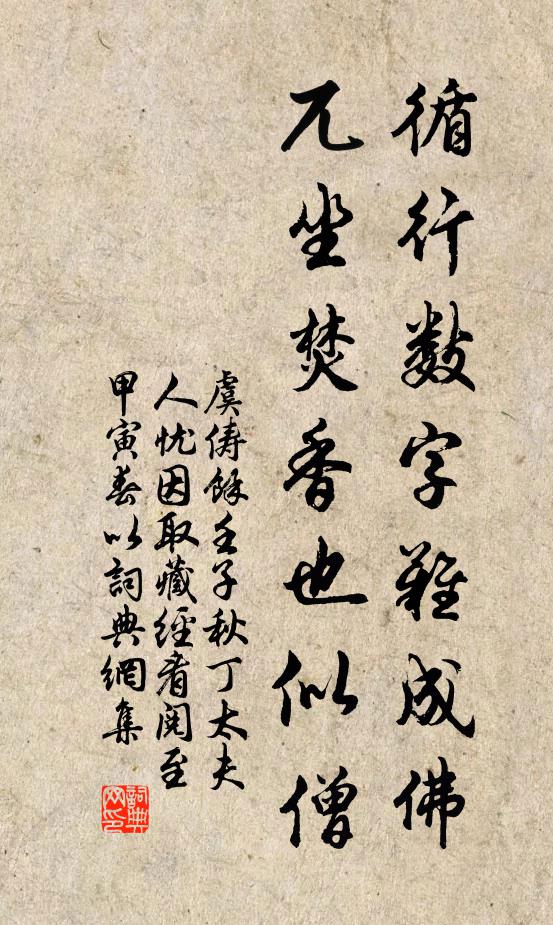 循行数字難成佛
兀坐焚香也似僧
虞儔餘壬子秋丁太夫
人忧因取藏經看閱至
甲寅春以詞典網集
詞典网印